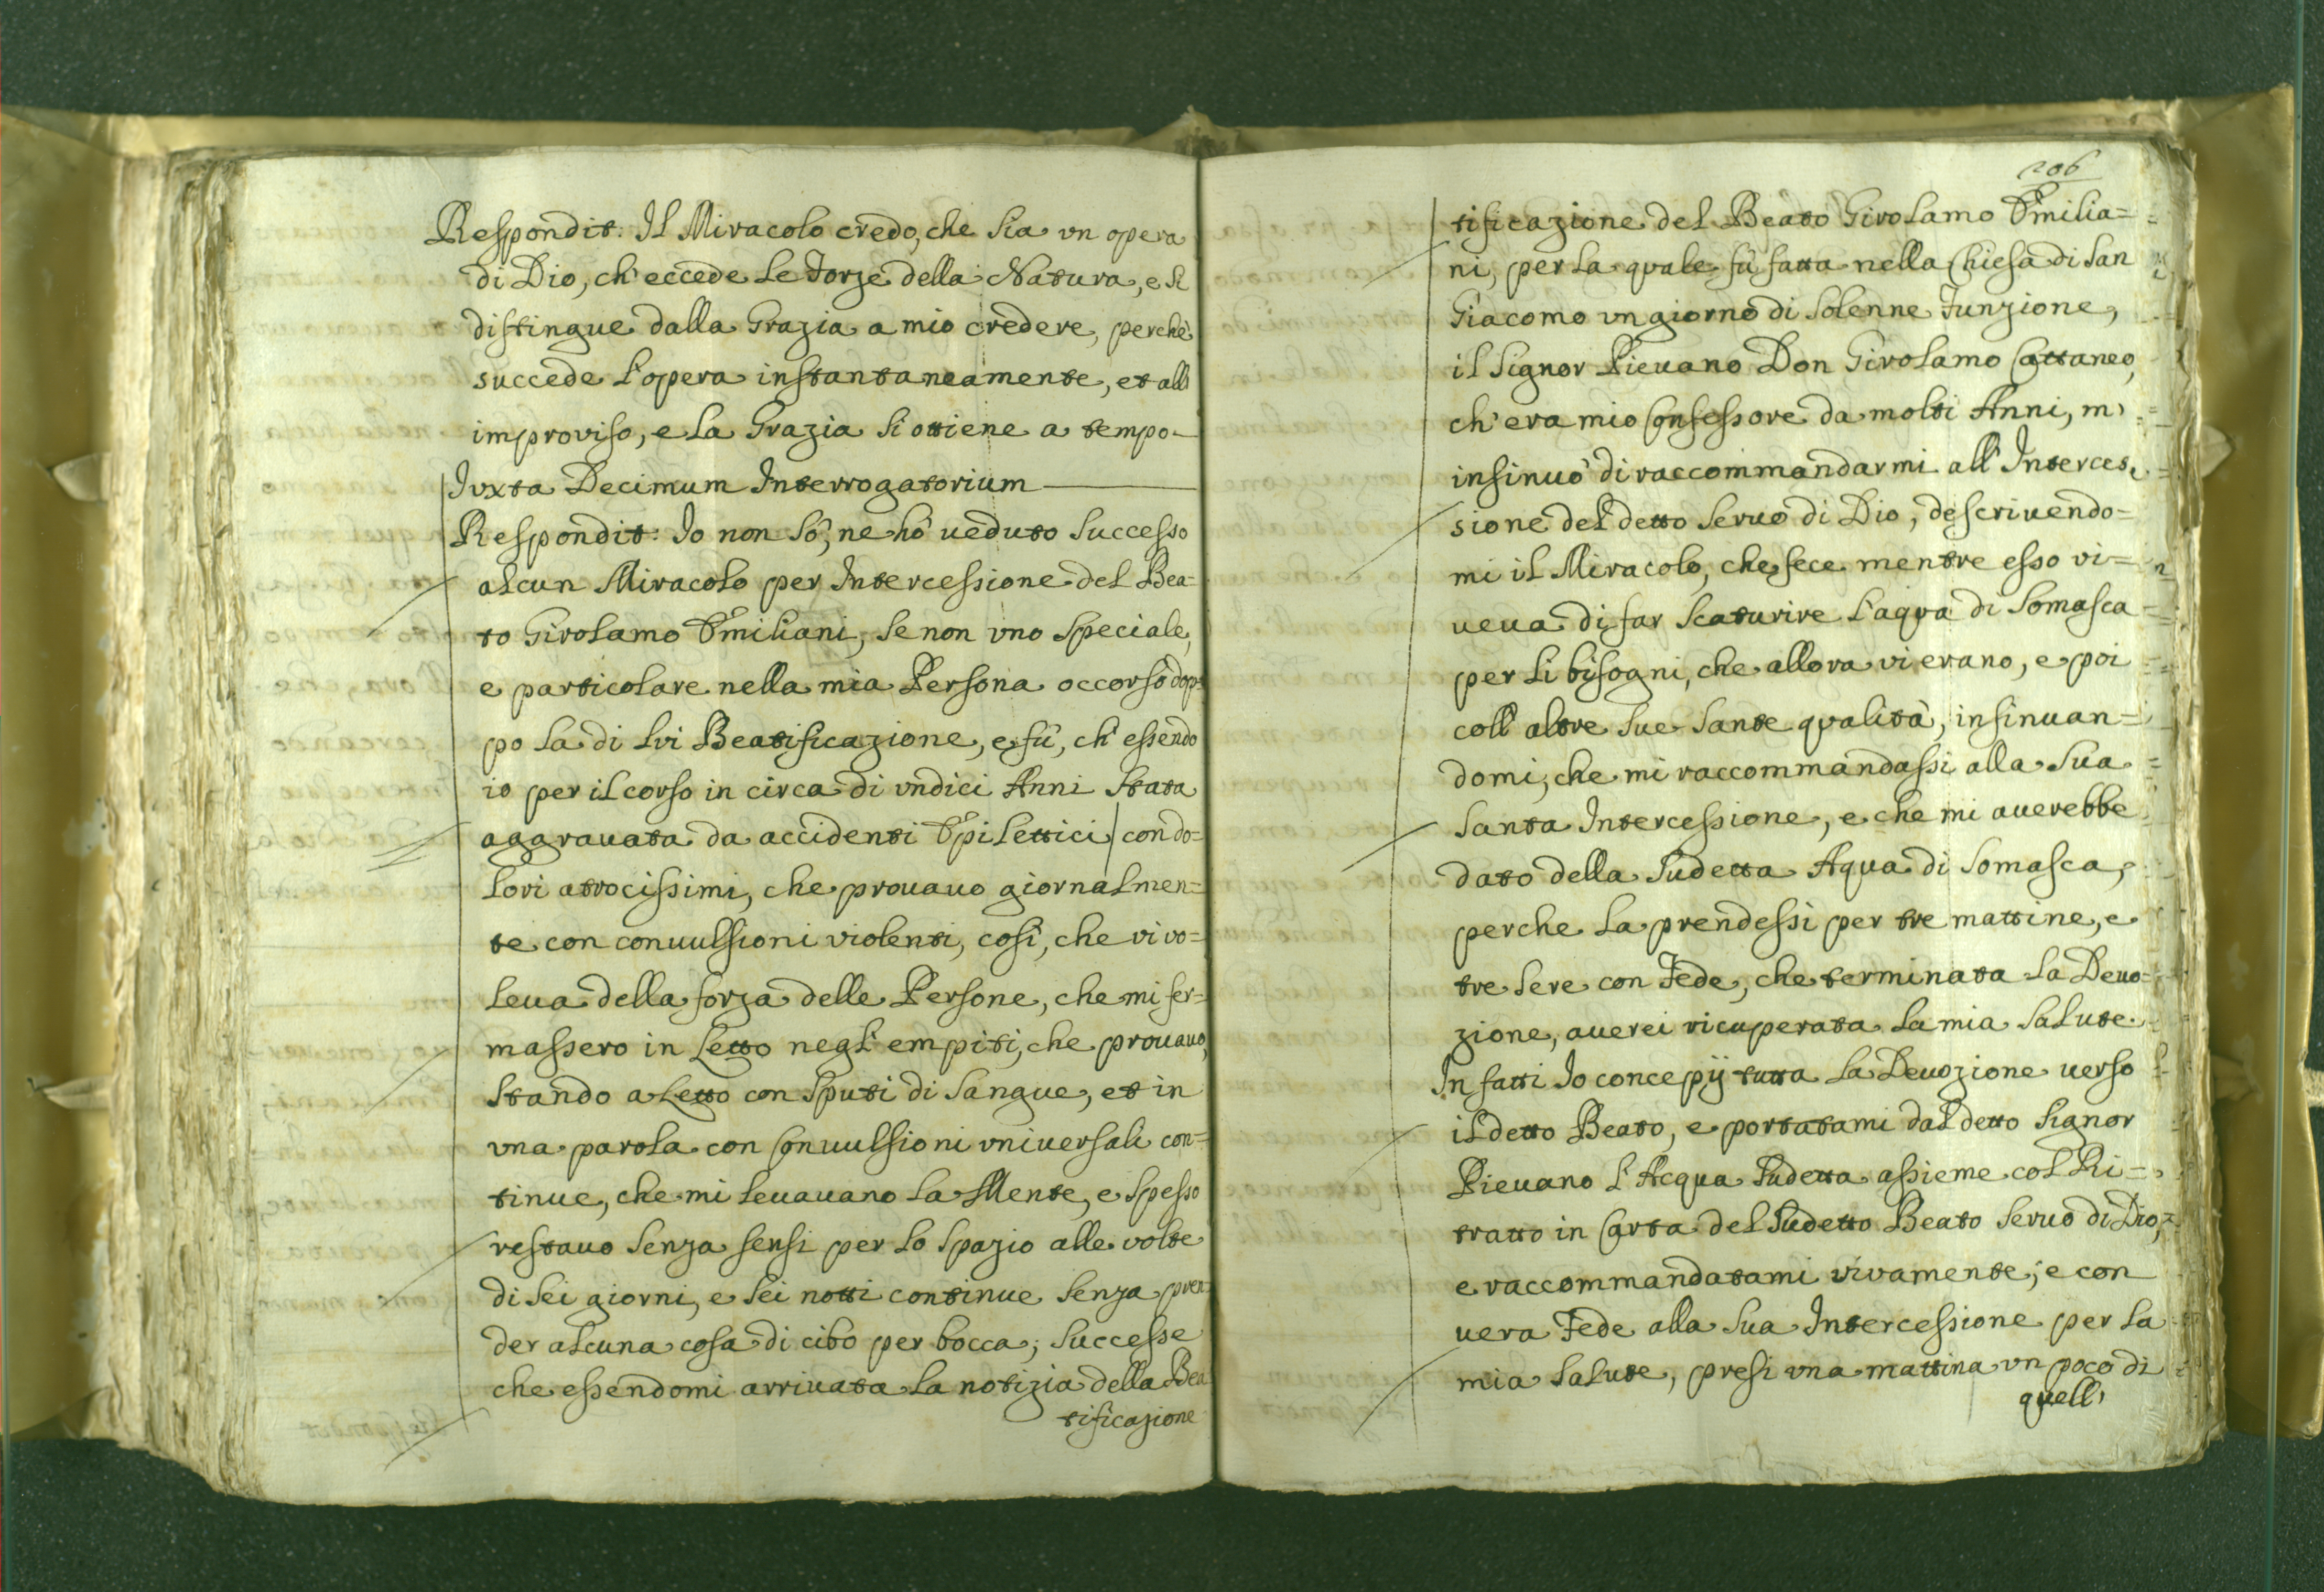 Respondit: Il Miracolo credo, che sia vn opera
di Dio, ch'eccede le Forze della Natura, e si
distingue dalla Grazia a mio credere, perche
succede l'opera instantaneamente, et all
improviso, e la Grazia si ottiene a tempo
Juxta Decimum Interrogatorium
Respondit: Io non sò, ne hò ueduto successo
alcun Miracolo per Intercessione del Bea=
to Girolamo Emiliani, se non vno speciale,
e particolare nella mia Persona occorso dop=
po la di lui Beatificazione, e fù, ch'essendo
io per il corso in circa di vndici Anni stata
aggrauata da accidenti Epilettici con do=
lori atrocissimi, che prouauo giornalmen=
te con conuulsioni violenti, così, che vi vo=
leua della forza delle Persone, che mi fer=
massero in Letto negl'empiti, che prouauo,
stando a Letto con sputi di sangue, et in
vna parola con Conuulsioni vniuersali con=
tinue, che mi leuauano la Mente, e spesso
restauo senza sensi per lo spazio alle volte
di sei giorni, e sei notti continue senza pren=
der alcuna cosa di cibo per bocca; successe
che essendomi arriuata la notizia della Bea
tificazione
206
tificazione del Beato Girolamo Emilia=
ni, per la quale fù fatta nella Chiesa di San
Giacomo vn giorno di solenne Funzione,
il Signor Pieuano Don Girolamo Cattaneo,
ch'era mio Confessore da molti Anni, m'
insinuò di raccommandarmi all'Interces=
sione del detto Seruo di Dio, descriuendo=
mi il Miracolo, che fece mentre esso vi=
ueua di far scaturire l'aqua di Somasca
per li bisogni, che allora vi erano, e poi
coll'altre sue sante qualità, insinuan=
domi, che mi raccommandassi alla sua
Santa Intercessione, e che mi auerebbe
dato della sudetta Aqua di Somasca,
perche la prendessi per tre mattine, e
tre sere con Fede, che terminata la Deuo=
zione, auerei ricuperata la mia salute.
In fatti Io concepij tutta la Deuozione uerso
il detto Beato, e portatami dal detto Signor
Pieuano l'Acqua sudetta assieme col Ri=
tratto in Carta del sudetto Beato Seruo di Dio,
e raccommandatami vivamente, e con
uera Fede alla sua Intercessione per la
mia salute, presi vna mattina vn poco di
quell'